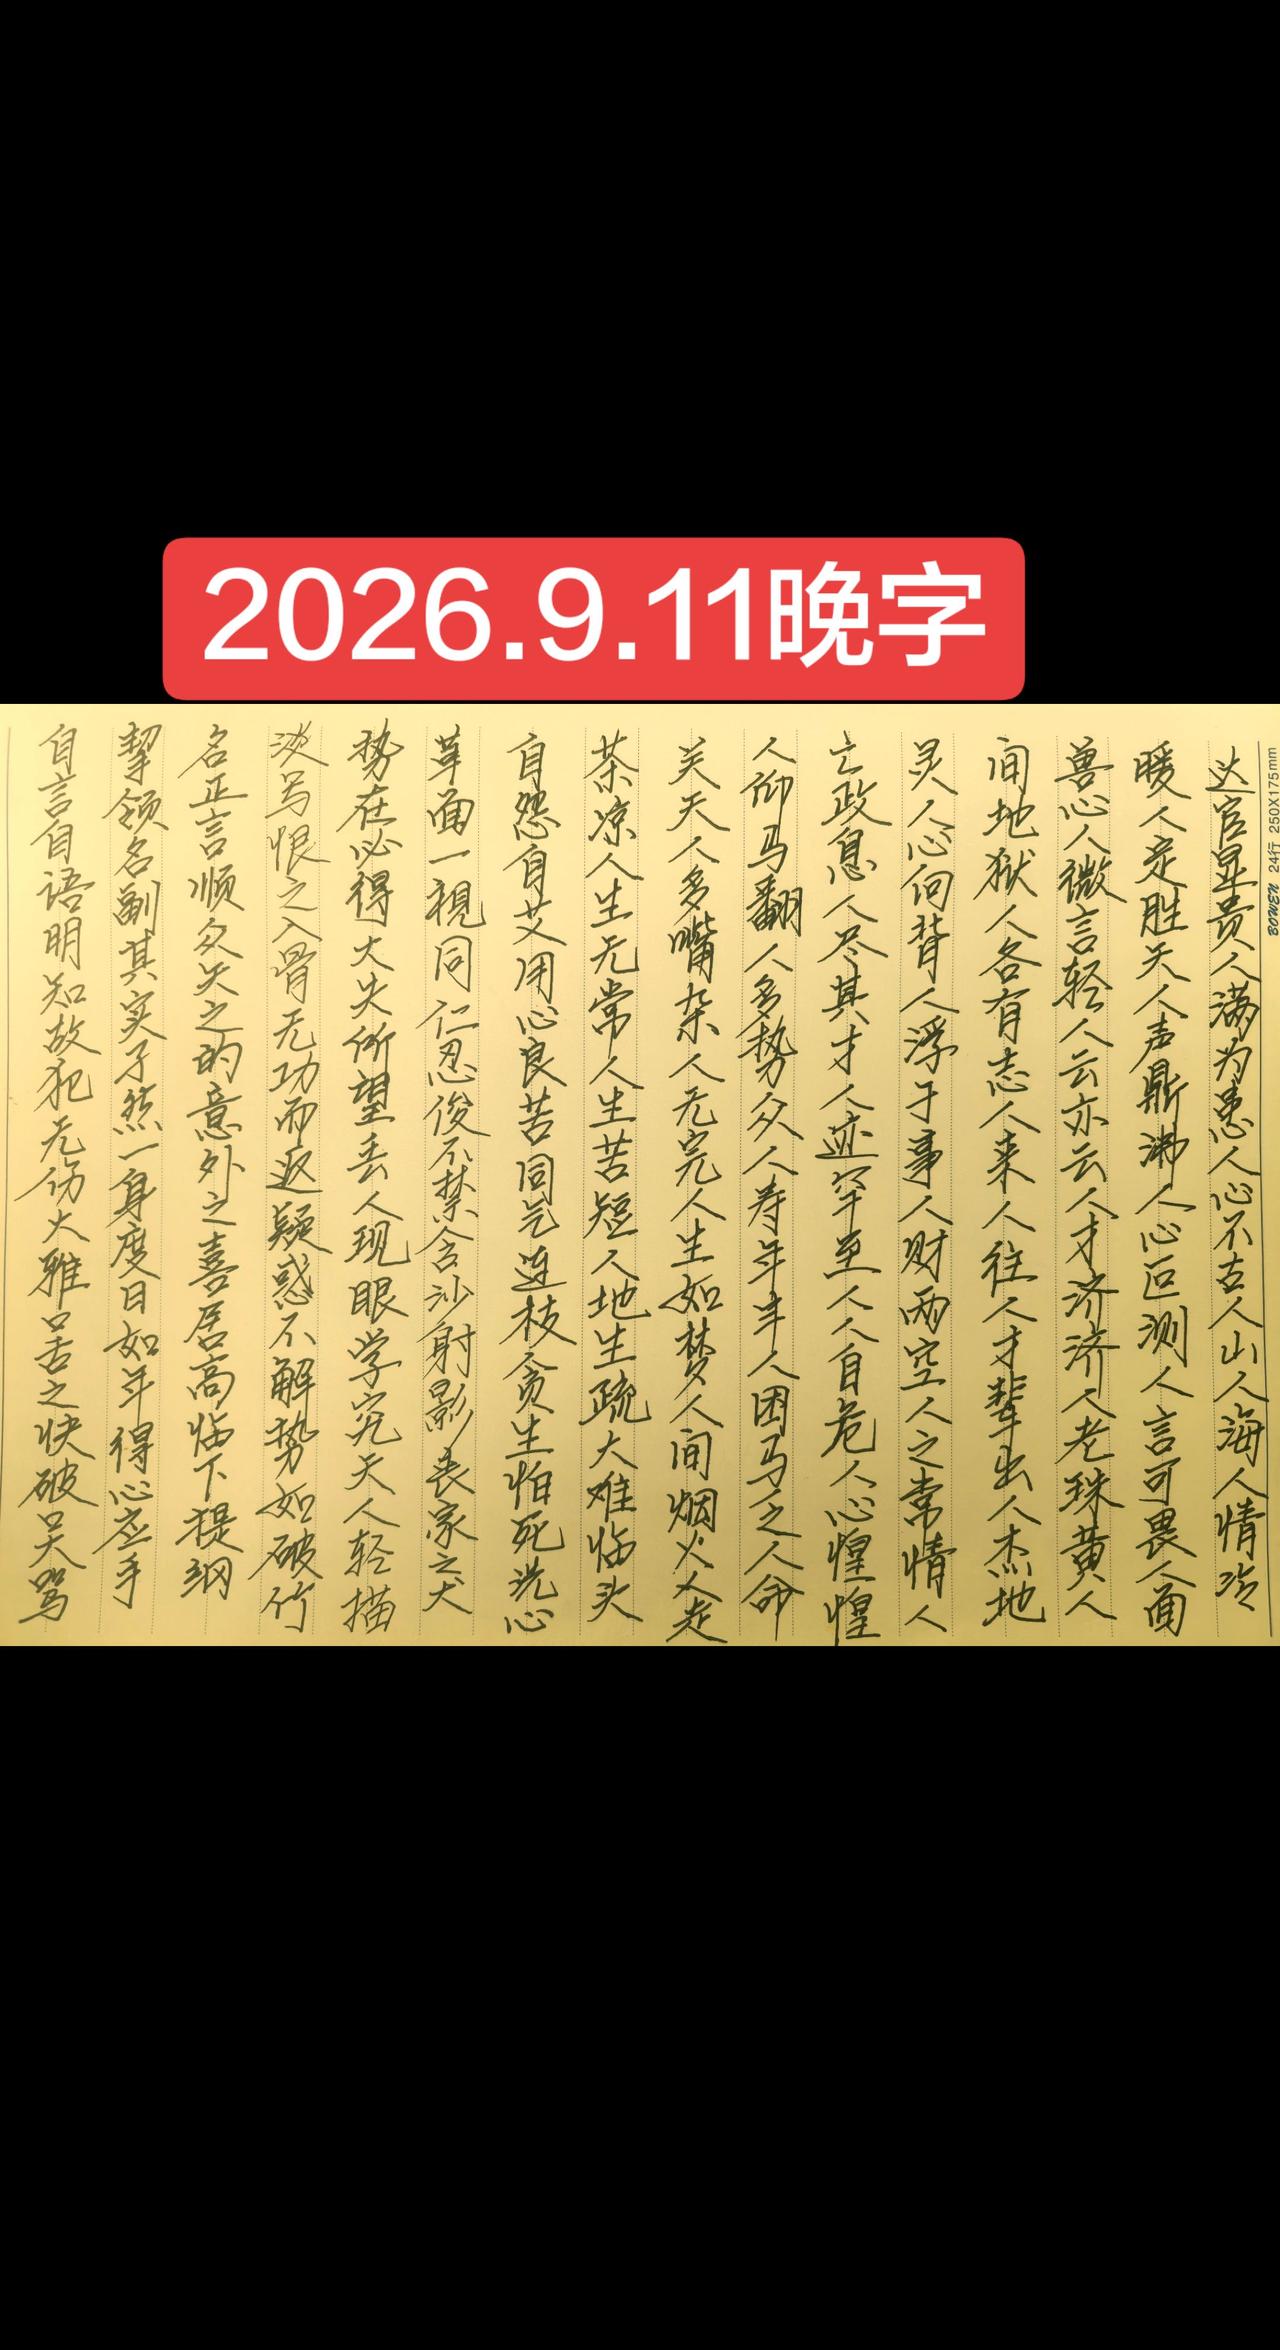 2026.9.11晚字
BOWEN 24行 250X175mm
达官显贵人满为患人心不古人山人海人情冷
暖人定胜天人声鼎沸人心叵测人言可畏人面
兽心人微言轻人云亦云人才济济人老珠黄人
间地狱人各有志人来人往人才辈出人杰地
灵人心向背人浮于事人财两空人之常情人
亡政息人尽其才人迹罕至人人自危人心惶惶
人仰马翻人多势众人寿年丰人困马乏人命
关天人多嘴杂人无完人生如梦人间烟火人走
茶凉人生无常人生苦短人地生疏大难临头
自怨自艾用心良苦同气连枝贪生怕死洗心
革面一视同仁忍俊不禁含沙射影丧家之犬
势在必得大失所望丢人现眼学究天人轻描
淡写恨之入骨无功而返疑惑不解势如破竹
名正言顺众矢之的意外之喜居高临下提纲
挈领名副其实孑然一身度日如年得心应手
自言自语明知故犯无伤大雅口舌之快破口大骂